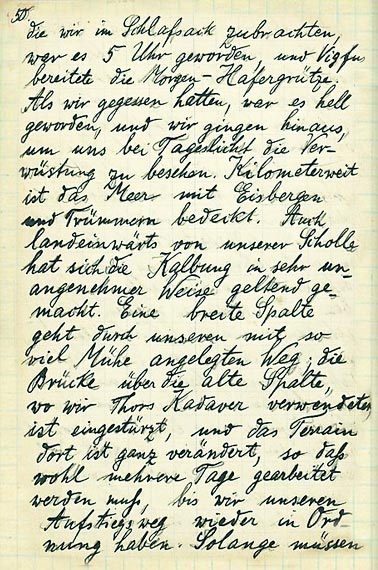 50.
die wir im Schlafsack zubrachten,
war es 5 Uhr geworden, und Vigfus
bereitete die Morgen-Hafergrütze.
Als wir gegessen hatten, war es hell
geworden, und wir gingen hinaus,
um uns bei Tageslicht die Ver-
wüstung zu besehen. Kilometerweit
ist das Meer mit Eisbergen
und Trümmern bedeckt. Auch
landeinwärts von unserer Scholle
hat sich die Kalbung in sehr un-
angenehmer Weise geltend ge-
macht. Eine breite Spalte
geht durch unseren mit so
viel Mühe angelegten Weg; die
Brücke über die alte Spalte,
wo wir Thors Kadaver verwendeten,
ist eingestürzt, und das Terrain
dort ist ganz verändert, so daß
wohl mehrere Tage gearbeitet
werden muß, bis wir unseren
Aufstiegsweg wieder in Ord
nung haben. Solange müssen